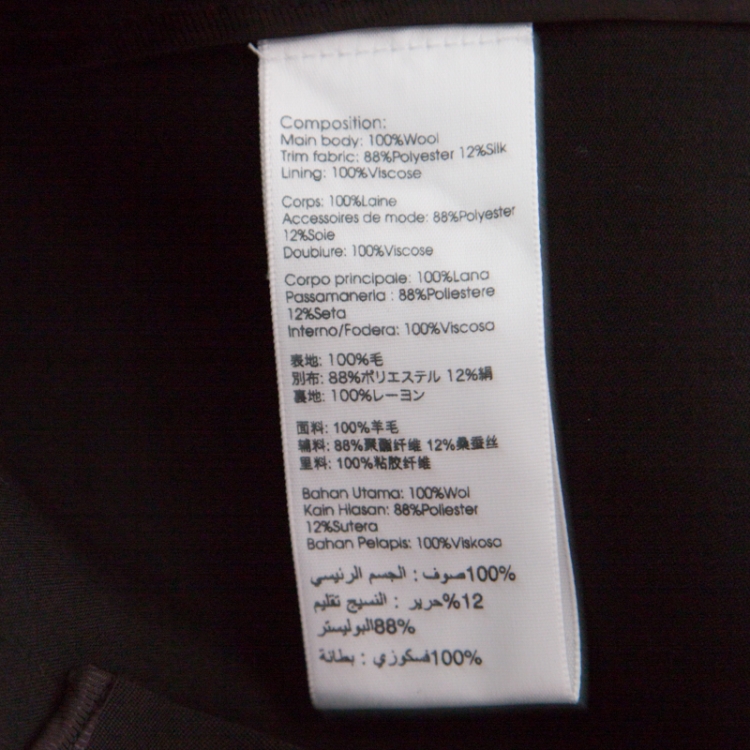 Composition:
Main body: 100%Wool
Trim fabric: 88%Polyester 12%Silk
Lining: 100%Viscose
Corps: 100%Laine
Accessoires de mode: 88%Polyester
12%Soie
Doublure: 100%Viscose
Corpo principale: 100%Lana
Passamaneria : 88%Poliestere
12%Seta
Interno/Fodera: 100%Viscosa
表地: 100%毛
別布: 88%ポリエステル 12%絹
裏地: 100%レーヨン
面料: 100%羊毛
辅料: 88%聚酯纤维 12%桑蚕丝
里料: 100%粘胶纤维
Bahan Utama: 100%Wol
Kain Hiasan: 88%Poliester
12%Sutera
Bahan Pelapis: 100%Viskosa
100%صوف : الجسم الرئيسي
12%حرير : النسيج تقليم
88%البوليستر
100%فسكوزي : بطانة